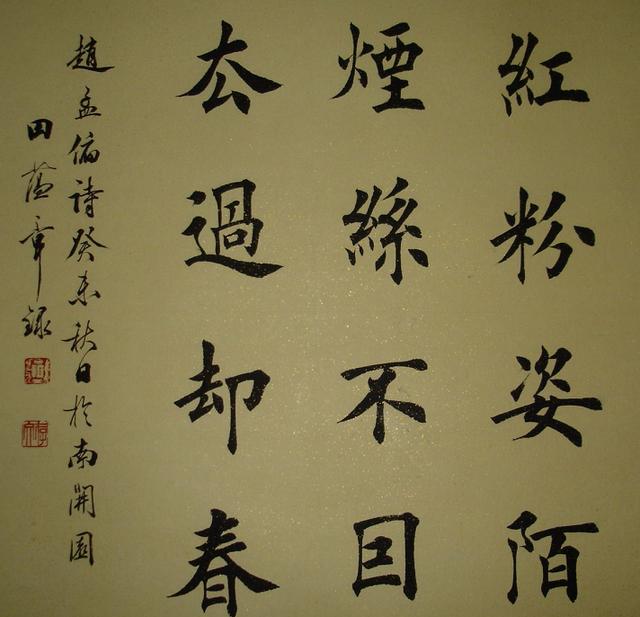 紅粉姿陌
煙絲不回
厺過却春
趙孟俯詩癸未秋日於南開園
田蕴章録